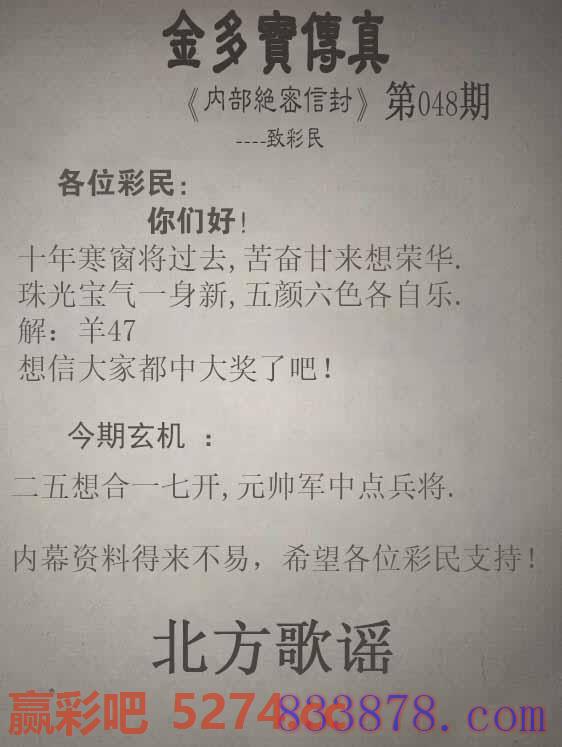 金多寳傳真
《内部絶密信封》第048期
----致彩民
各位彩民:
你们好!
十年寒窗将过去,苦奋甘来想荣华.
珠光宝气一身新,五颜六色各自乐.
解：羊47
想信大家都中大奖了吧!
今期玄机 ：
二五想合一七开,元帅军中点兵将.
内幕资料得来不易，希望各位彩民支持!
北方歌谣
赢彩吧 5274.cc
833878.com